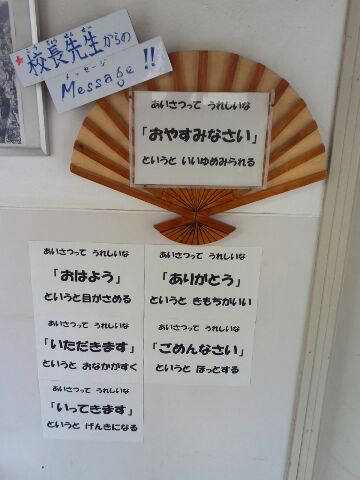 校長先生からの
こうちょうせんせい
メッセージ
Message!!
あいさつって うれしいな
「おやすみなさい」
というと いいゆめみられる
あいさつって うれしいな
「おはよう」
というと目がさめる
あいさつって うれしいな
「いただきます」
というと おなかがすく
あいさつって うれしいな
「いってきます」
というと げんきになる
あいさつって うれしいな
「ありがとう」
というと きもちがいい
あいさつって うれしいな
「ごめんなさい」
というと ほっとする